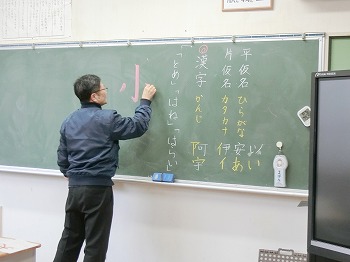 平仮名 ひらがな 安 あ 以 い
片仮名 カタカナ 伊 イ
漢字 かんじ 阿 宇
「とめ」「はね」「はらい」
小